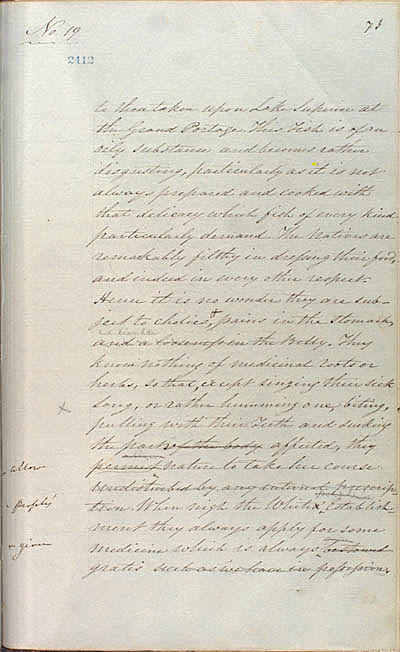 No. 19
73
2412
to those taken upon Lake Superior at
the Grand Portage. This Fish is of an
oily substance and becomes rather
disgusting, particularly as it is not
always prepared and cooked with
that delicacy which fish of every kind
particularly demand. The Natives are
remarkably filthy in dressing their food,
and indeed in every other respect.
Hence it is no wonder they are sub-
ject to cholics, & pains in the stomach,
and a looseness in the Belly. They
know nothing of medicinal roots or
herbs, so that, except singing their sick
x
song, or rather humming one, biting,
pulling with their Teeth and sucking
the part of the body affected, they
- allow
permit nature to take her course
undisturbed by any internal prescrip-
- Peoples'
tion. When nigh the Whites' Establish-
ment they always apply for some
- given
medicine which is always bestowed
gratis such as we have in possession.